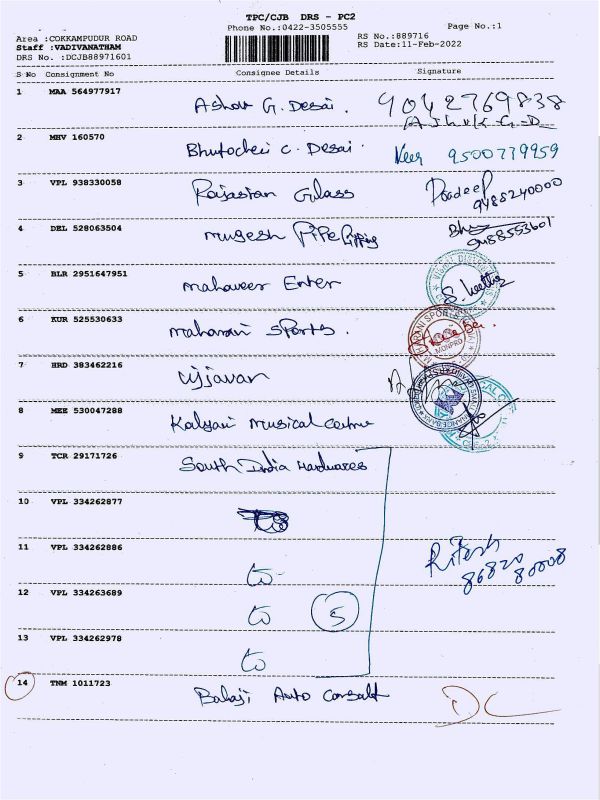 TPC/CJB DRS - PC2
Phone No.:0422-3505555 Page No.:1
Area :COKKAMPUDUR ROAD RS No.:889716
Staff :VADIVANATHAM RS Date:11-Feb-2022
DRS No. :DCJB88971601
S No Consignment No Consignee Details Signature
1 MAA 564977917 Ashok G. Desai. 9042769838
AShok G-D
2 MHV 160570 C. Desai. Veer 9500779959
3 VPL 938330058 Rajastan Glass Pradeep
9488240000
4 DEL 528063504 Mugesh Pipe Fitting
9488553601
5 BLR 2951647951 Mahaveer Enter
6 KUR 525530633 Maharani Sports.
MAHARANI SPORTS
7 HRD 383462216 Ujjavan
8 MEE 530047288 Kalyani Musical Centre
9 TCR 29171726 South India Hardwares
10 VPL 334262877
11 VPL 334262886 to Ritesh
86820
80008
12 VPL 334263689 to 5
13 VPL 334262978 to
14 TNM 1011723 Balaji Auto Consalt DC